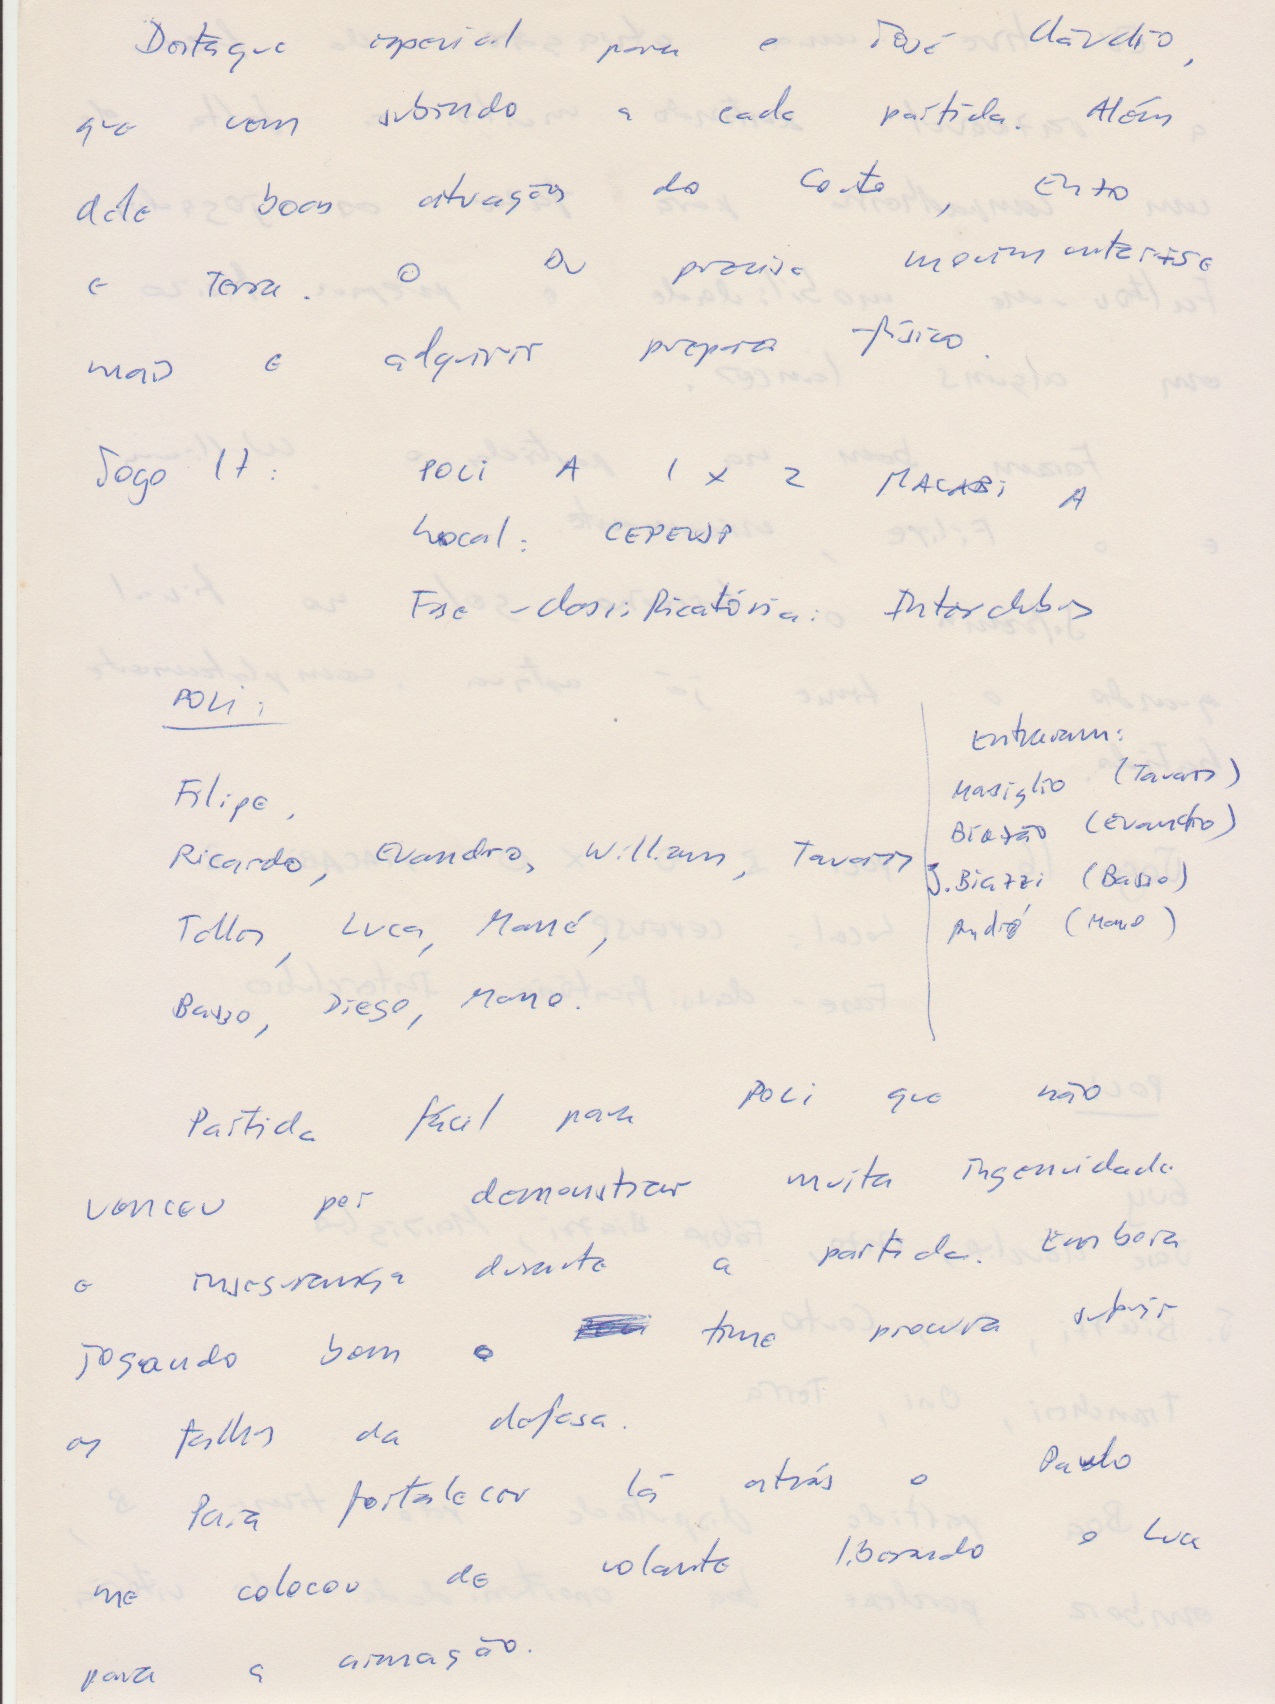 Destaque especial para o José Cláudio,
que vem subindo a cada partida. Além
dele boas atuações do Couto, Enzo
e Terra. O Du precisa movimentar-se
mais e adquirir preparo físico.
Jogo 17: POLI A 1 x 2 MACABI A
Local: CEPEUSP
Fase classificatória: Interclubes
POLI:
Filipe,
Ricardo, Evandro, William, Tavares
Telles, Luca, Mané,
Basso, Diego, Mano.
Entraram:
Masiglio (Tavares)
Biazão (Evandro)
J. Biazzi (Basso)
André (Mano)
Partida fácil para POLI que não
venceu por demonstrar muita ingenuidade
e insegurança durante a partida. Embora
jogando bem o time procura suprir
as falhas da defesa.
Para fortalecer lá atrás o Paulo
me colocou de volante liberando o Luca
para a armação.